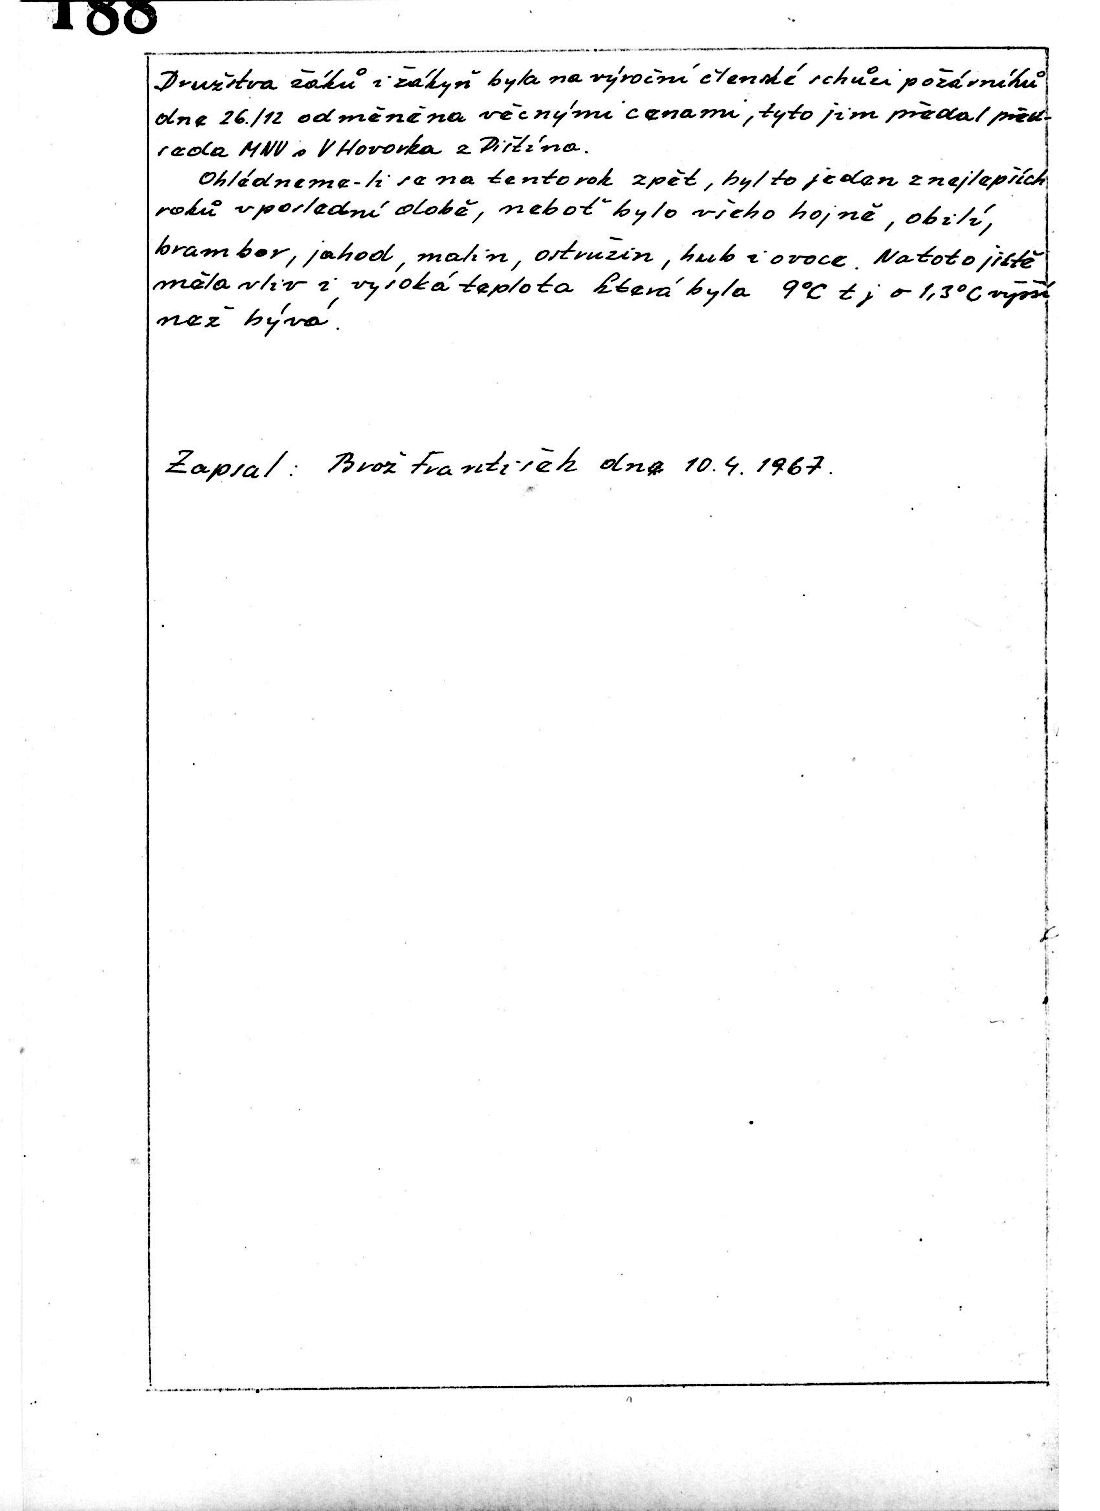 188
Družstva žáků i žákyň byla na výroční členské schůzi požárníků
dne 26./12 odměněna věcnými cenami, tyto jim předal před-
seda MNV s V Hovorka z Dištína.
Ohlédneme-li se na tento rok zpět, byl to jeden z nejlepších
roků v poslední době, neboť bylo všeho hojně, obilí,
brambor, jahod, malin, ostružin, hub i ovoce. Na toto jistě
měla vliv i vysoká teplota která byla 9°C t j o 1,3°C výšší
než bývá.
Zapsal: Brož František dne 10. 4. 1967.